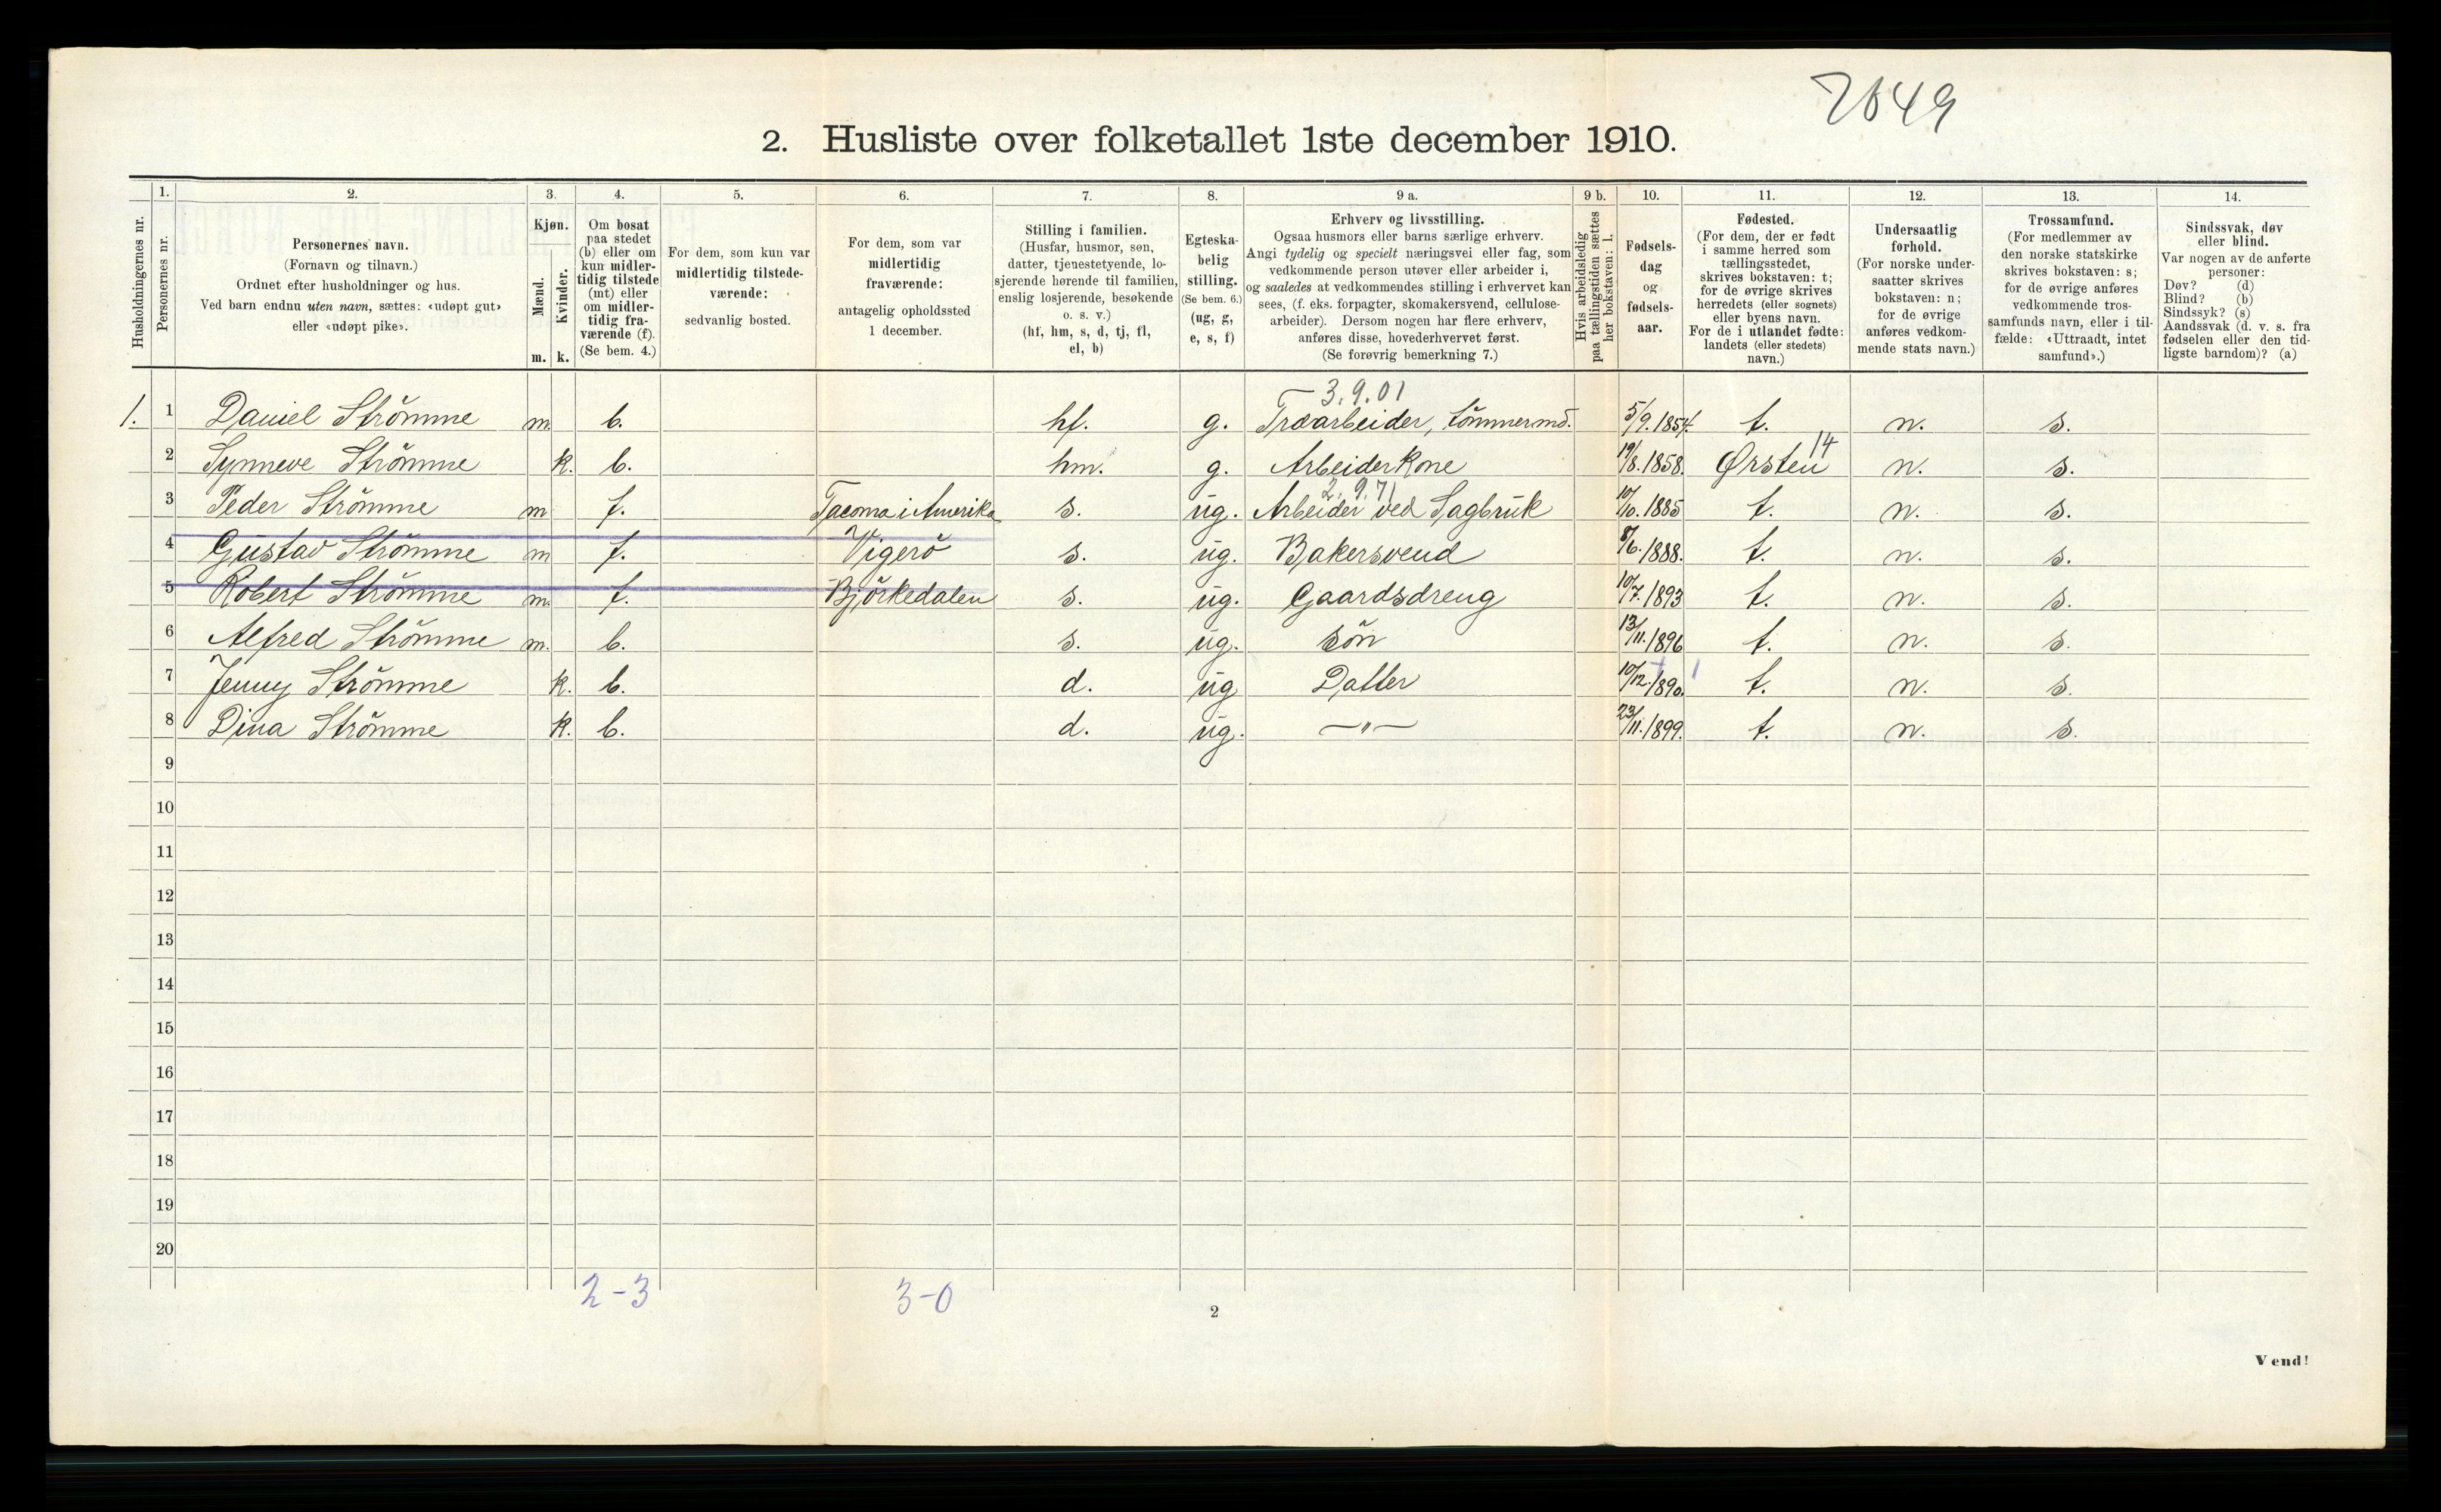 7049
2. Husliste over folketallet 1ste december 1910.
Husholdningernes nr.
1. Personernes nr.
2. Personernes navn.
(Fornavn og tilnavn.)
Ordnet efter husholdninger og hus.
Ved barn endnu uten navn, sættes: «udøpt gut»
eller «udøpt pike».
3. Kjøn.
Mænd. m.
Kvinder. k.
4. Om bosat
paa stedet
(b) eller om
kun midler-
tidig tilstede
(mt) eller
om midler-
tidig fra-
værende (f).
(Se bem. 4.)
5. For dem, som kun var
midlertidig tilstede-
værende:
sedvanlig bosted.
6. For dem, som var
midlertidig
fraværende:
antagelig opholdssted
1 december.
7. Stilling i familien.
(Husfar, husmor, søn,
datter, tjenestetyende, lo-
sjerende hørende til familien,
enslig losjerende, besøkende
o. s. v.)
(hf, hm, s, d, tj, fl,
el, b)
8. Egteska-
belig
stilling.
(Se bem. 6.)
(ug, g,
e, s, f)
9 a. Erhverv og livsstilling.
Ogsaa husmors eller barns særlige erhverv.
Angi tydelig og specielt næringsvei eller fag, som
vedkommende person utøver eller arbeider i,
og saaledes at vedkommendes stilling i erhvervet kan
sees, (f. eks. forpagter, skomakersvend, cellulose-
arbeider). Dersom nogen har flere erhverv,
anføres disse, hovederhvervet først.
(Se forøvrig bemerkning 7.)
9 b. Hvis arbeidsledig
paa tællingstiden sættes
her bokstaven: l.
10. Fødsels-
dag
og
fødsels-
aar.
11. Fødested.
(For dem, der er født
i samme herred som
tællingsstedet,
skrives bokstaven: t;
for de øvrige skrives
herredets (eller sognets)
eller byens navn.
For de i utlandet fødte:
landets (eller stedets)
navn.)
12. Undersaatlig
forhold.
(For norske under-
saatter skrives
bokstaven: n;
for de øvrige
anføres vedkom-
mende stats navn.)
13. Trossamfund.
(For medlemmer av
den norske statskirke
skrives bokstaven: s;
for de øvrige anføres
vedkommende tros-
samfunds navn, eller i til-
fælde: «Uttraadt, intet
samfund».)
14. Sindssvak, døv
eller blind.
Var nogen av de anførte
personer:
Døv? (d)
Blind? (b)
Sindssyk? (s)
Aandssvak (d. v. s. fra
fødselen eller den tid-
ligste barndom)? (a)
3.9.01
1. 1 Daniel Strömme m. b. hf. g. Træarbeider, tömmermd. 5/9.1854. t. n. s.
14
2 Synneve Strömme k. b. hm. g. Arbeiderkone 19/8.1858. Ørsten n. s.
2.9.71
3 Peder Strömme m f. Tacoma i Amerika s. ug. Arbeider ved Sagbruk 10/10.1885 t. n. s.
4 Gustav Strömme m f. Vigerö s. ug. Bakersvend 8/6.1888. t. n. s.
5 Robert Strömme m. f. Björkedalen s. ug. Gaardsdreng 10/7.1893 t. n. s.
6 Alfred Strömme m. b. s. ug. Sön 13/11.1896 t. n. s.
7 Jenny Strömme k. b. d. ug Datter 10/12.1890. t. n. s.
8 Dina Strömme k. b. d. ug. —"— 23/11.1899. t. n. s.
9
10
11
12
13
14
15
16
17
18
19
20
2-3 3-0
2
Vend!